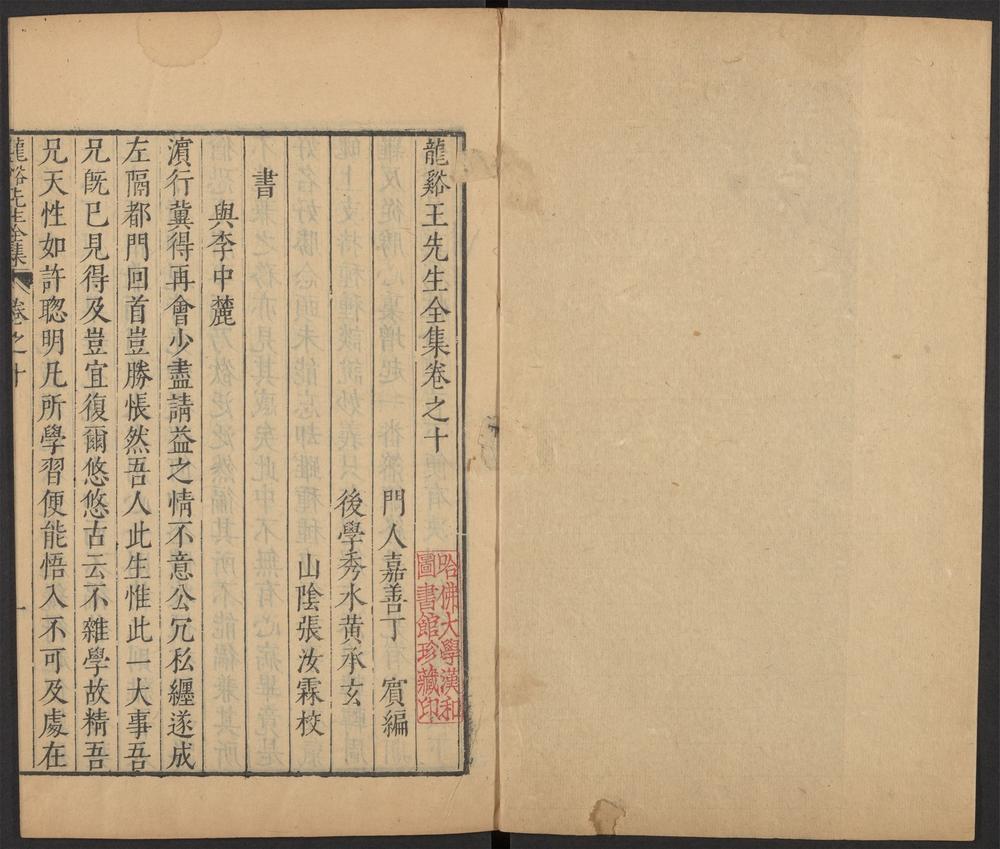 龍谿王先生全集卷之十
門人嘉善丁賓編
後學秀水黃承玄
山陰張汝霖校
書
與李中麓
濵行冀得再會少盡請益之情不意公冗私纒遂成
左隔都門回首豈勝悵然吾人此生惟此一大事吾
兄旣已見得及豈宜復爾悠悠古云不雜學故精吾
兄天性如許聦明凡所學習便能悟入不可及處在
龍谿先生全集 卷之十 一
哈佛大學漢和
圖書館珍藏印